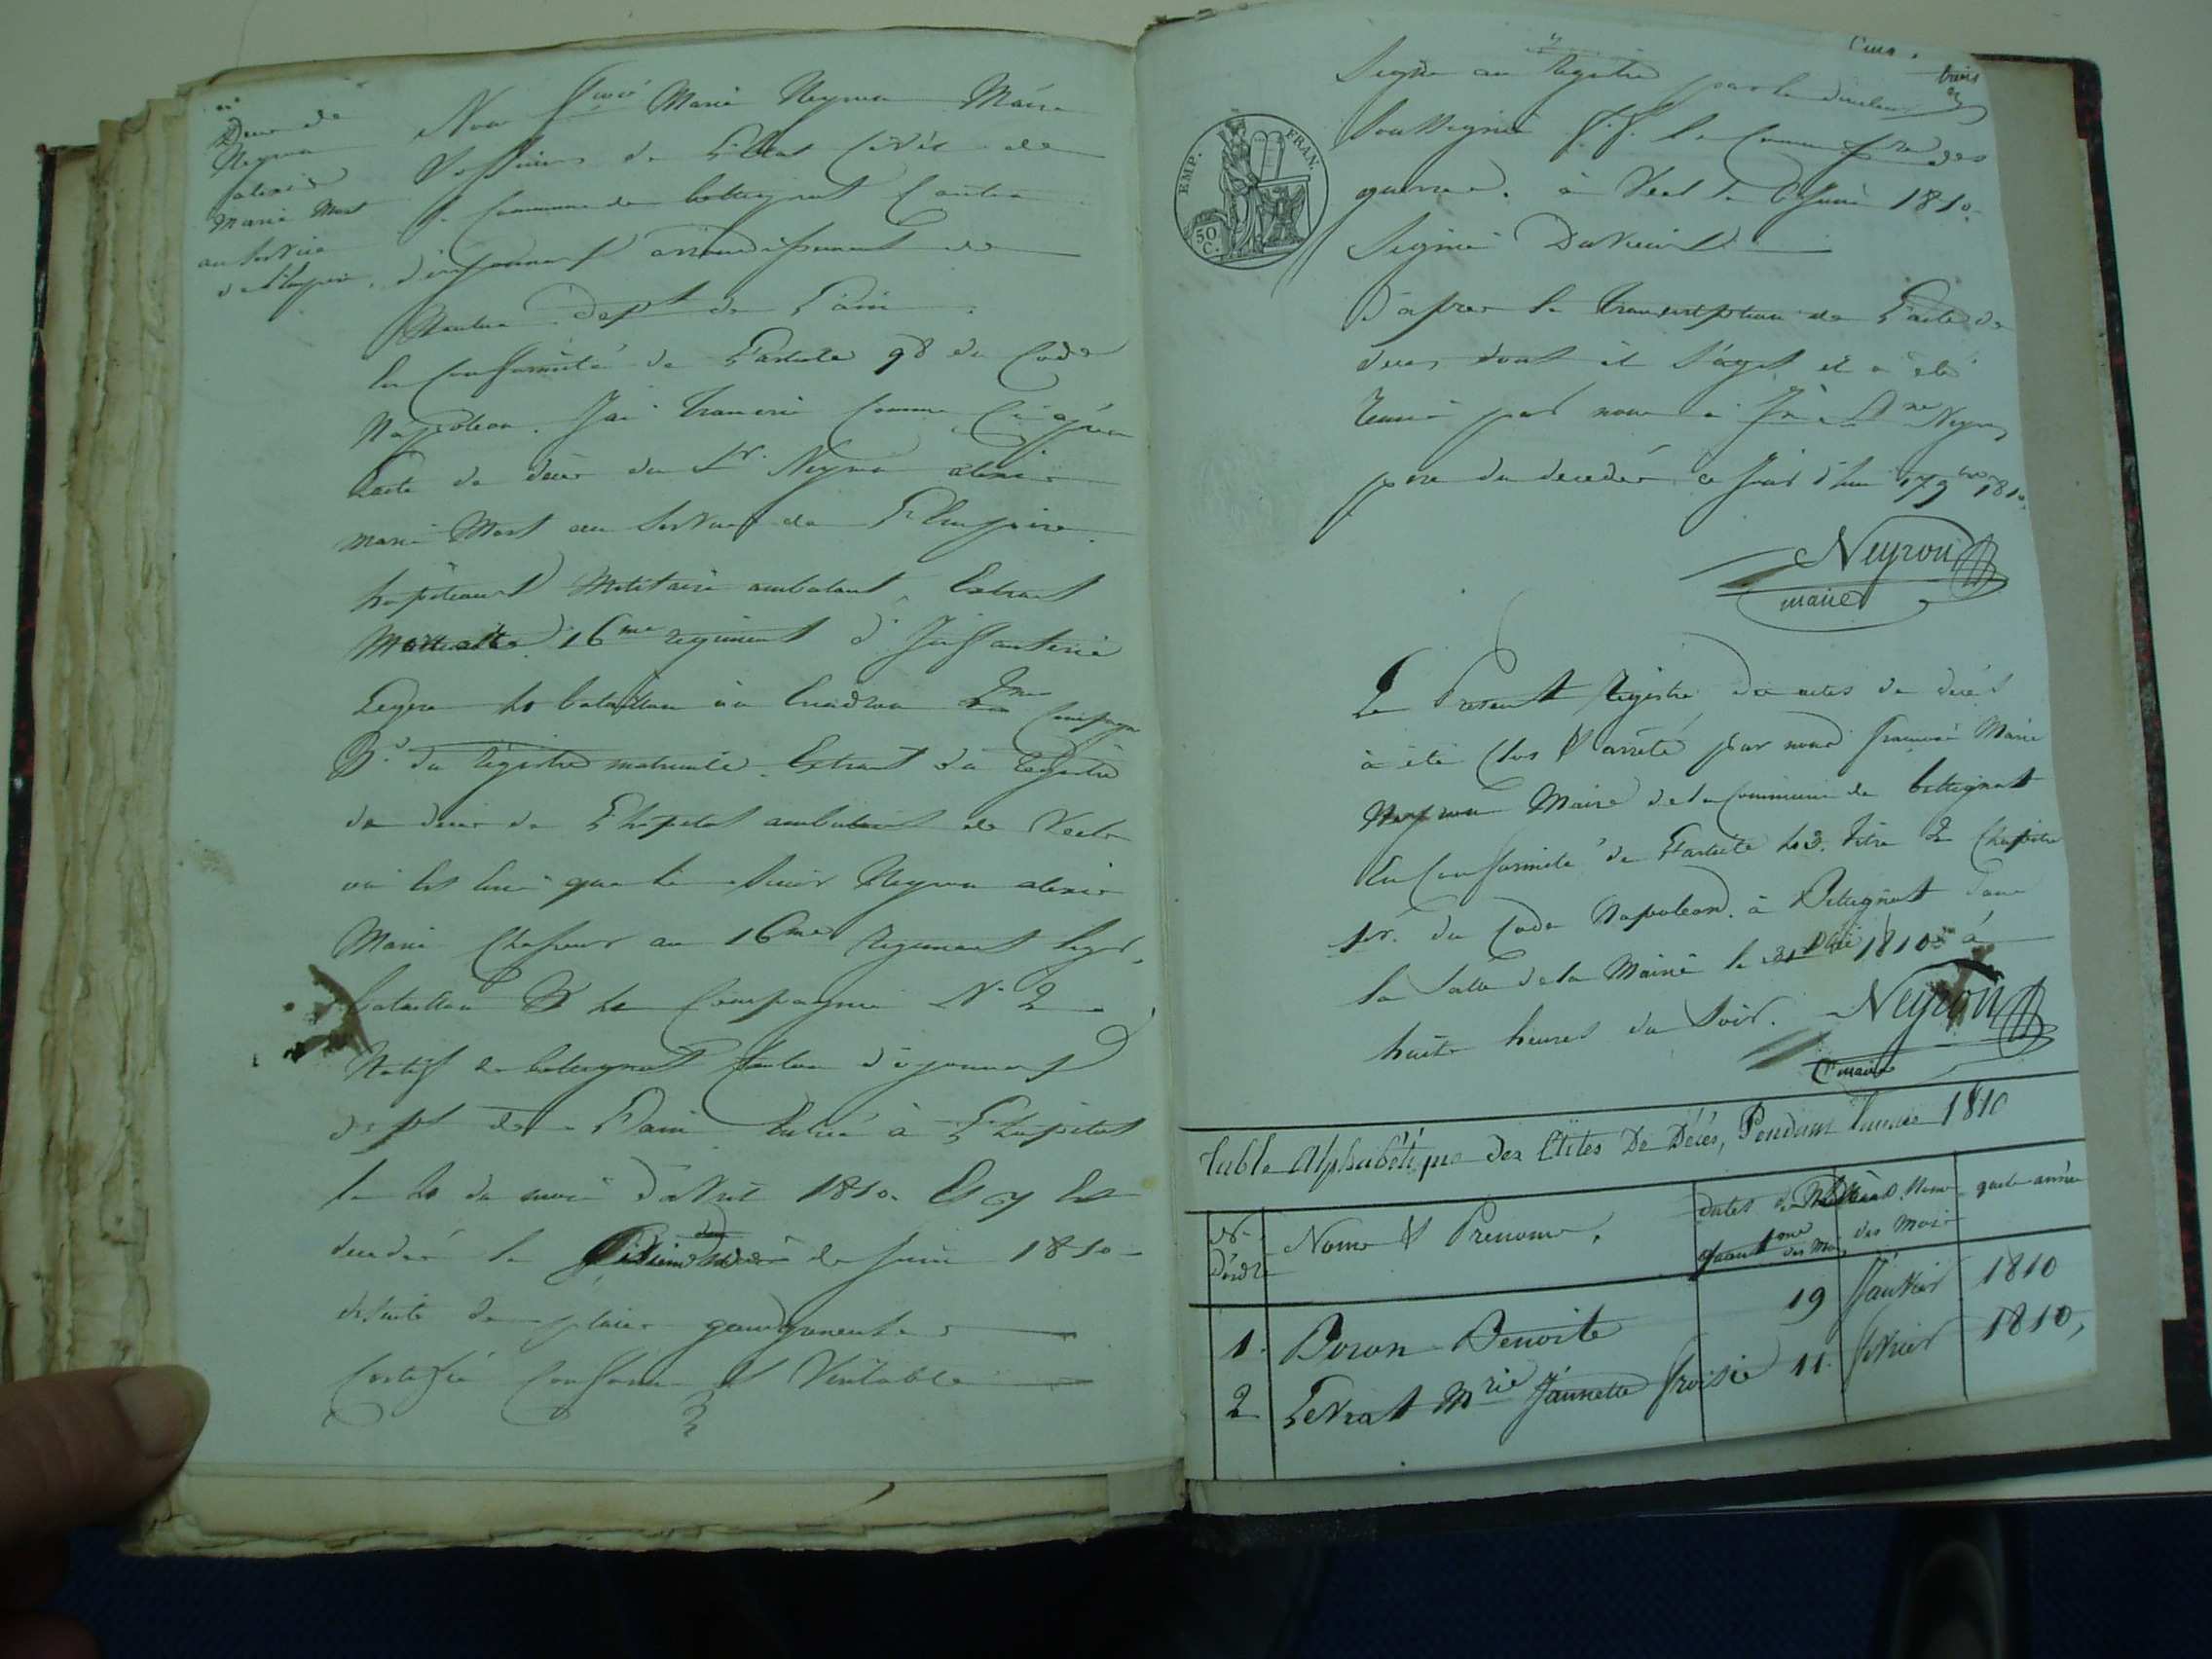 Deces de
Neyron
alexis
Marie Mort
au Service
de l'Empire.
Nous fçois Marie Neyron Maire
& officier de l'Etat Civil de
la Commune de bettignat Canton
d'oyonnax arrondissement de
Nantua Dept de l'ain.
En Conformité de l'article 98 du Code
Napoleon. J'ai transcri Comme Ci après
l'acte de décès du Sr. Neyron alexis
marie Mort au Service de l'Empire.
hôpiteaux Militaire ambulant, Extrait
Mortuaire 16me regiment d'Infanterie
Legere 4e bataillon 2me Compagnie
N.° du régistre matricule. Extrait du Registre
de décès de l'hopital ambulant de
que le sieur Neyron alexis
Marie Chasseur au 16me Regiment leger,
bataillon 4e Compagnie N° 2
Natif de bettignat Canton d'oyonnax
dept de l'ain Entré à l'hopital
le 20 du mois d'avril 1810. Et y Est
decedé le de Juin 1810
de suite de plaies gangreneuses
Certifié Conforme & Véritable
Cinq.
trois
Signé au Registre par le directeur
Soussigné f.f. de Commissre des
guerres. à le 6 Juin 1810.
Signé
EMP. FRAN.
50 C.
D'apres la transcription de l'acte de
deces dont il s'agit il a été
remis par nous a Neyron
pere du decedé ce Jourd'hui 17 9bre 1810.
Neyron
maire
Le Present Registre des actes de décès
à été Clos & arrêté par nous françois Marie
Neyron Maire de la Commune de bettignat
En Conformité de l'article 43. titre 2 Chapitre
1er. du Code Napoleon. à Bettignat dans
la Salle de la Mairie le 31 Xbre 1810 à
huit heures du Soir. Neyron
maire
Table Alphabétique des Actes De Décès, Pendant l'année 1810
N° d'ordre
Noms & Prenoms.
Dates des Décès
quantme des Mois
Noms des Mois
quelle année
1. Boson Benoite 19 Janvier 1810
2 Levrat Mrie Jeannette froisie 11. fevrier 1810,